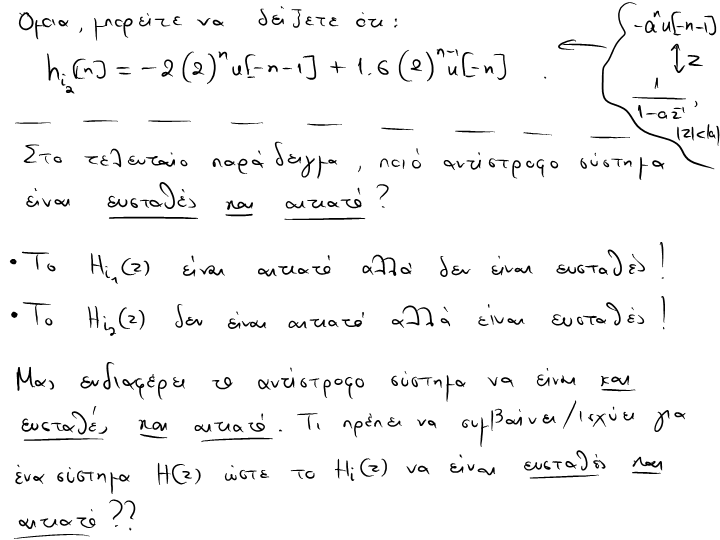 Όμοια, μπορείτε να δείξετε ότι:
h_{i_2}[n] = -2(2)^n u[-n-1] + 1.6(2)^{n-1} u[-n] .
-a^n u[-n-1]
↕ z
1/(1-az^{-1}), |z|<|a|
Στο τελευταίο παράδειγμα, ποιό αντίστροφο σύστημα
είναι ευσταθές και αιτιατό?
• Το H_{i_1}(z) είναι αιτιατό αλλά δεν είναι ευσταθές!
• Το H_{i_2}(z) δεν είναι αιτιατό αλλά είναι ευσταθές!
Μας ενδιαφέρει το αντίστροφο σύστημα να είναι και
ευσταθές και αιτιατό. Τι πρέπει να συμβαίνει/ισχύει για
ένα σύστημα H(z) ώστε το H_i(z) να είναι ευσταθές και
αιτιατό??